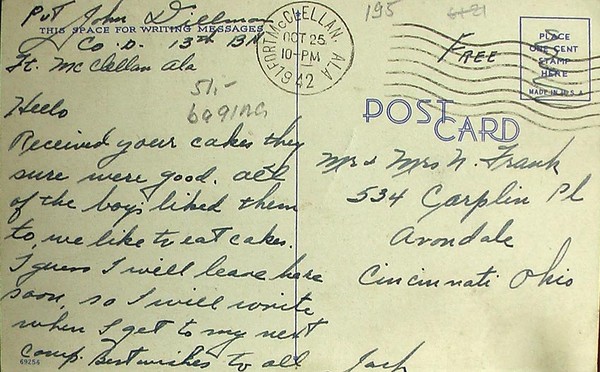 Pvt John Dillman
THIS SPACE FOR WRITING MESSAGES
Co. D. 13th BN
Ft. McClellan Ala
Hello
Received your cakes they
sure were good. all
of the boys liked them
to, we like to eat cakes.
I guess I will leave here
soon, so I will write
when I get to my next
camp. Best wishes to all
Jack
69256
FORT McCLELLAN, ALA
OCT 25
10-PM
1942
195
6421
Free
PLACE
ONE CENT
STAMP
HERE
MADE IN U.S.A.
POST
CARD
Mr & Mrs N. Frank
534 Carplin Pl
Avondale
Cincinnati Ohio